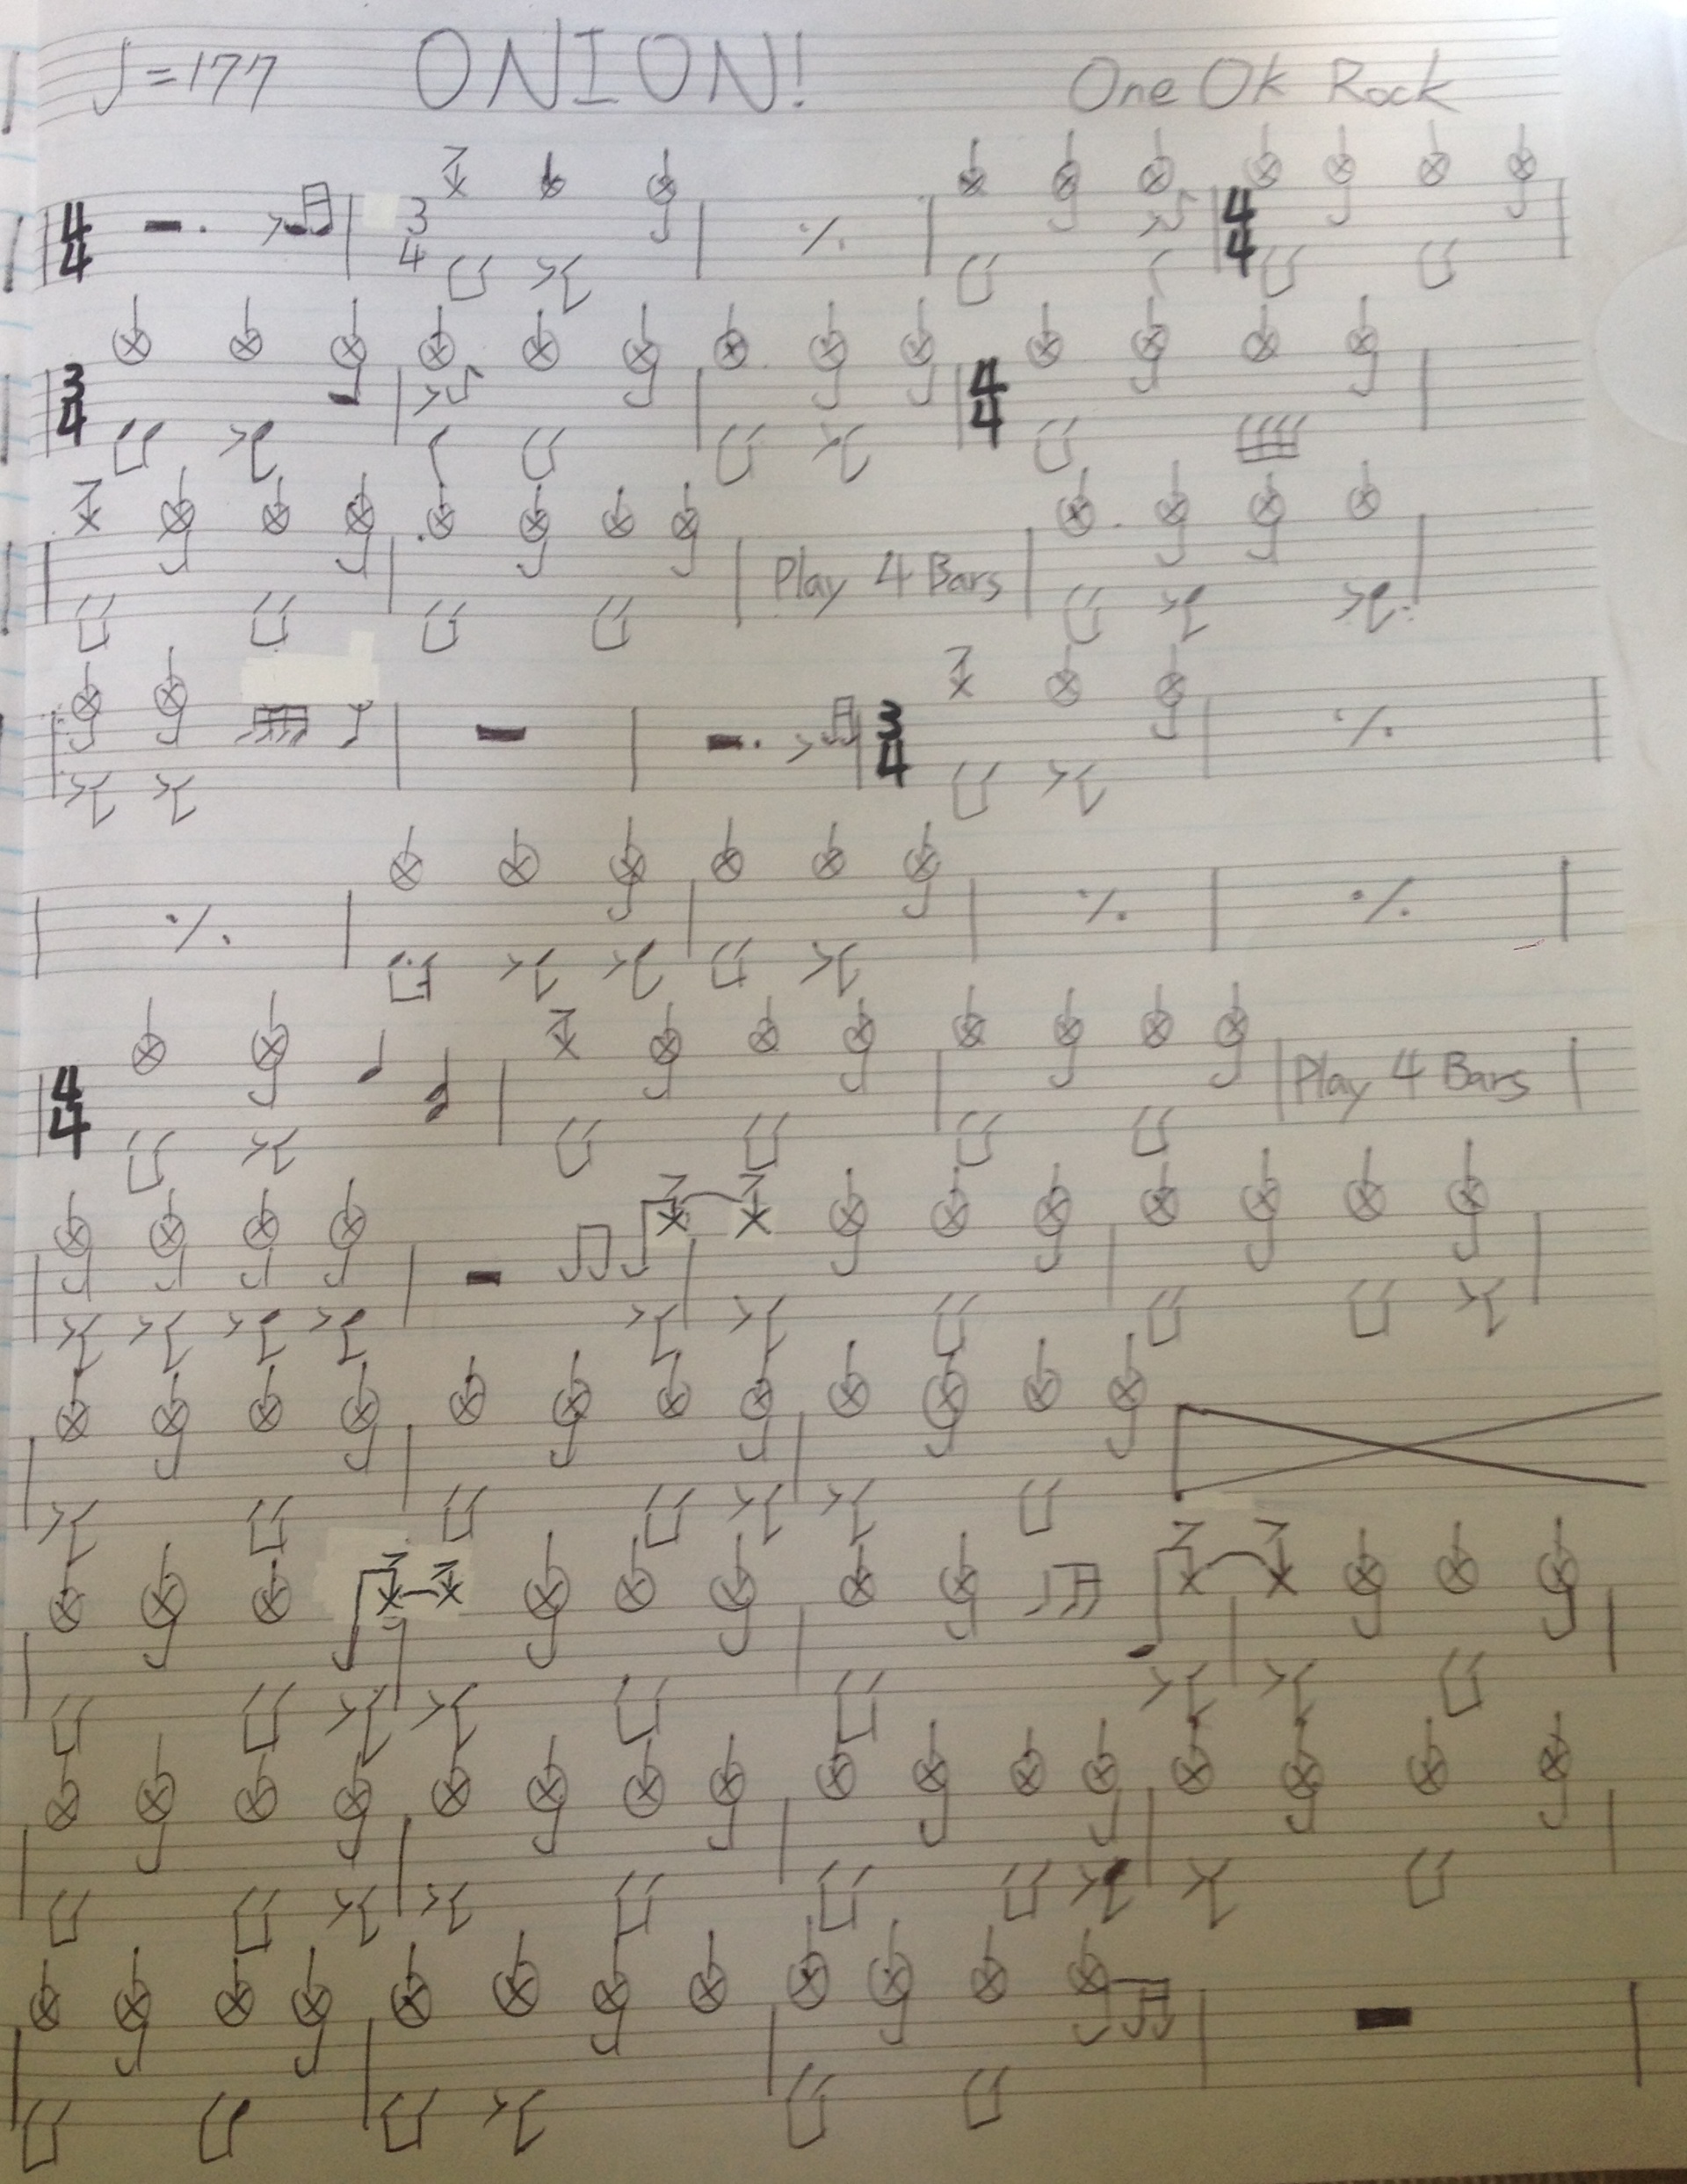 ♩=177 ONION! One Ok Rock
4/4 3/4 4/4
3/4 4/4
Play 4 Bars
3/4
4/4 Play 4 Bars